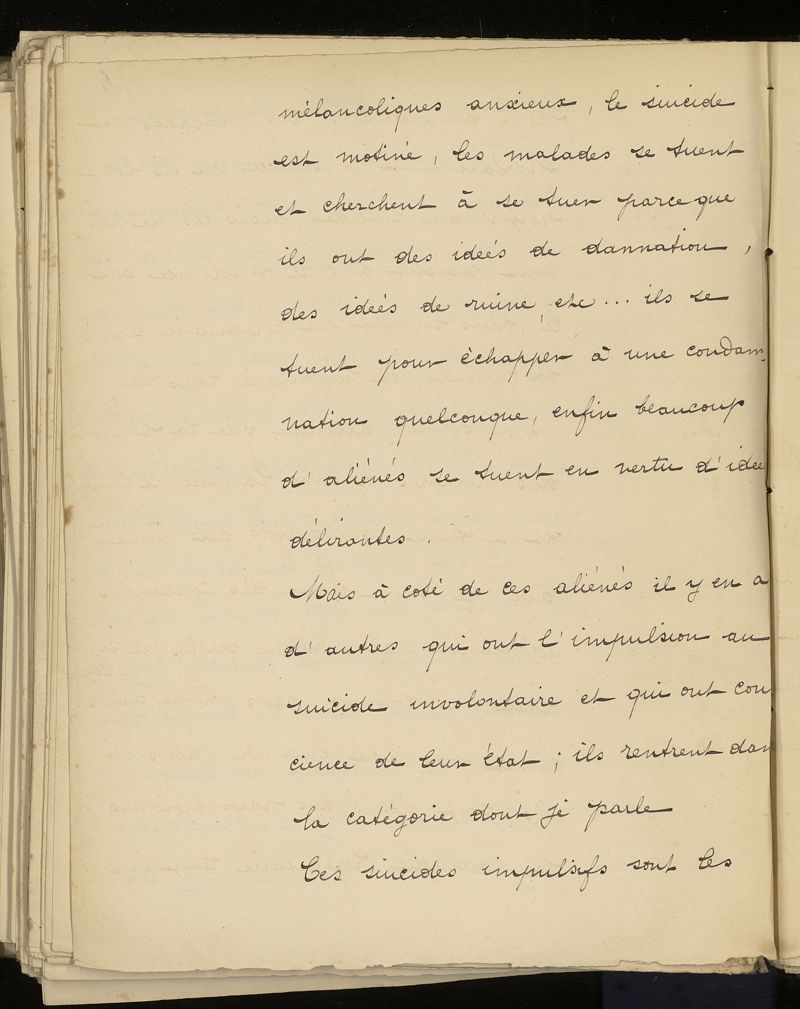 mélancoliques anxieux, le suicide
est motivé, les malades se tuent
et cherchent à se tuer parce que
ils ont des ideés de dannation,
des ideés de ruine, etc... ils se
tuent pour échapper à une condam-
nation quelconque, enfin beaucoup
d'aliénés se tuent en vertu d'idee
délirantes.
Mais à coté de ces aliénés il y en a
d'autres qui ont l'impulsion au
suicide involontaire et qui ont con
cience de leur état; ils rentrent dan
la catégorie dont je parle
Ces suicides impulsifs sont les